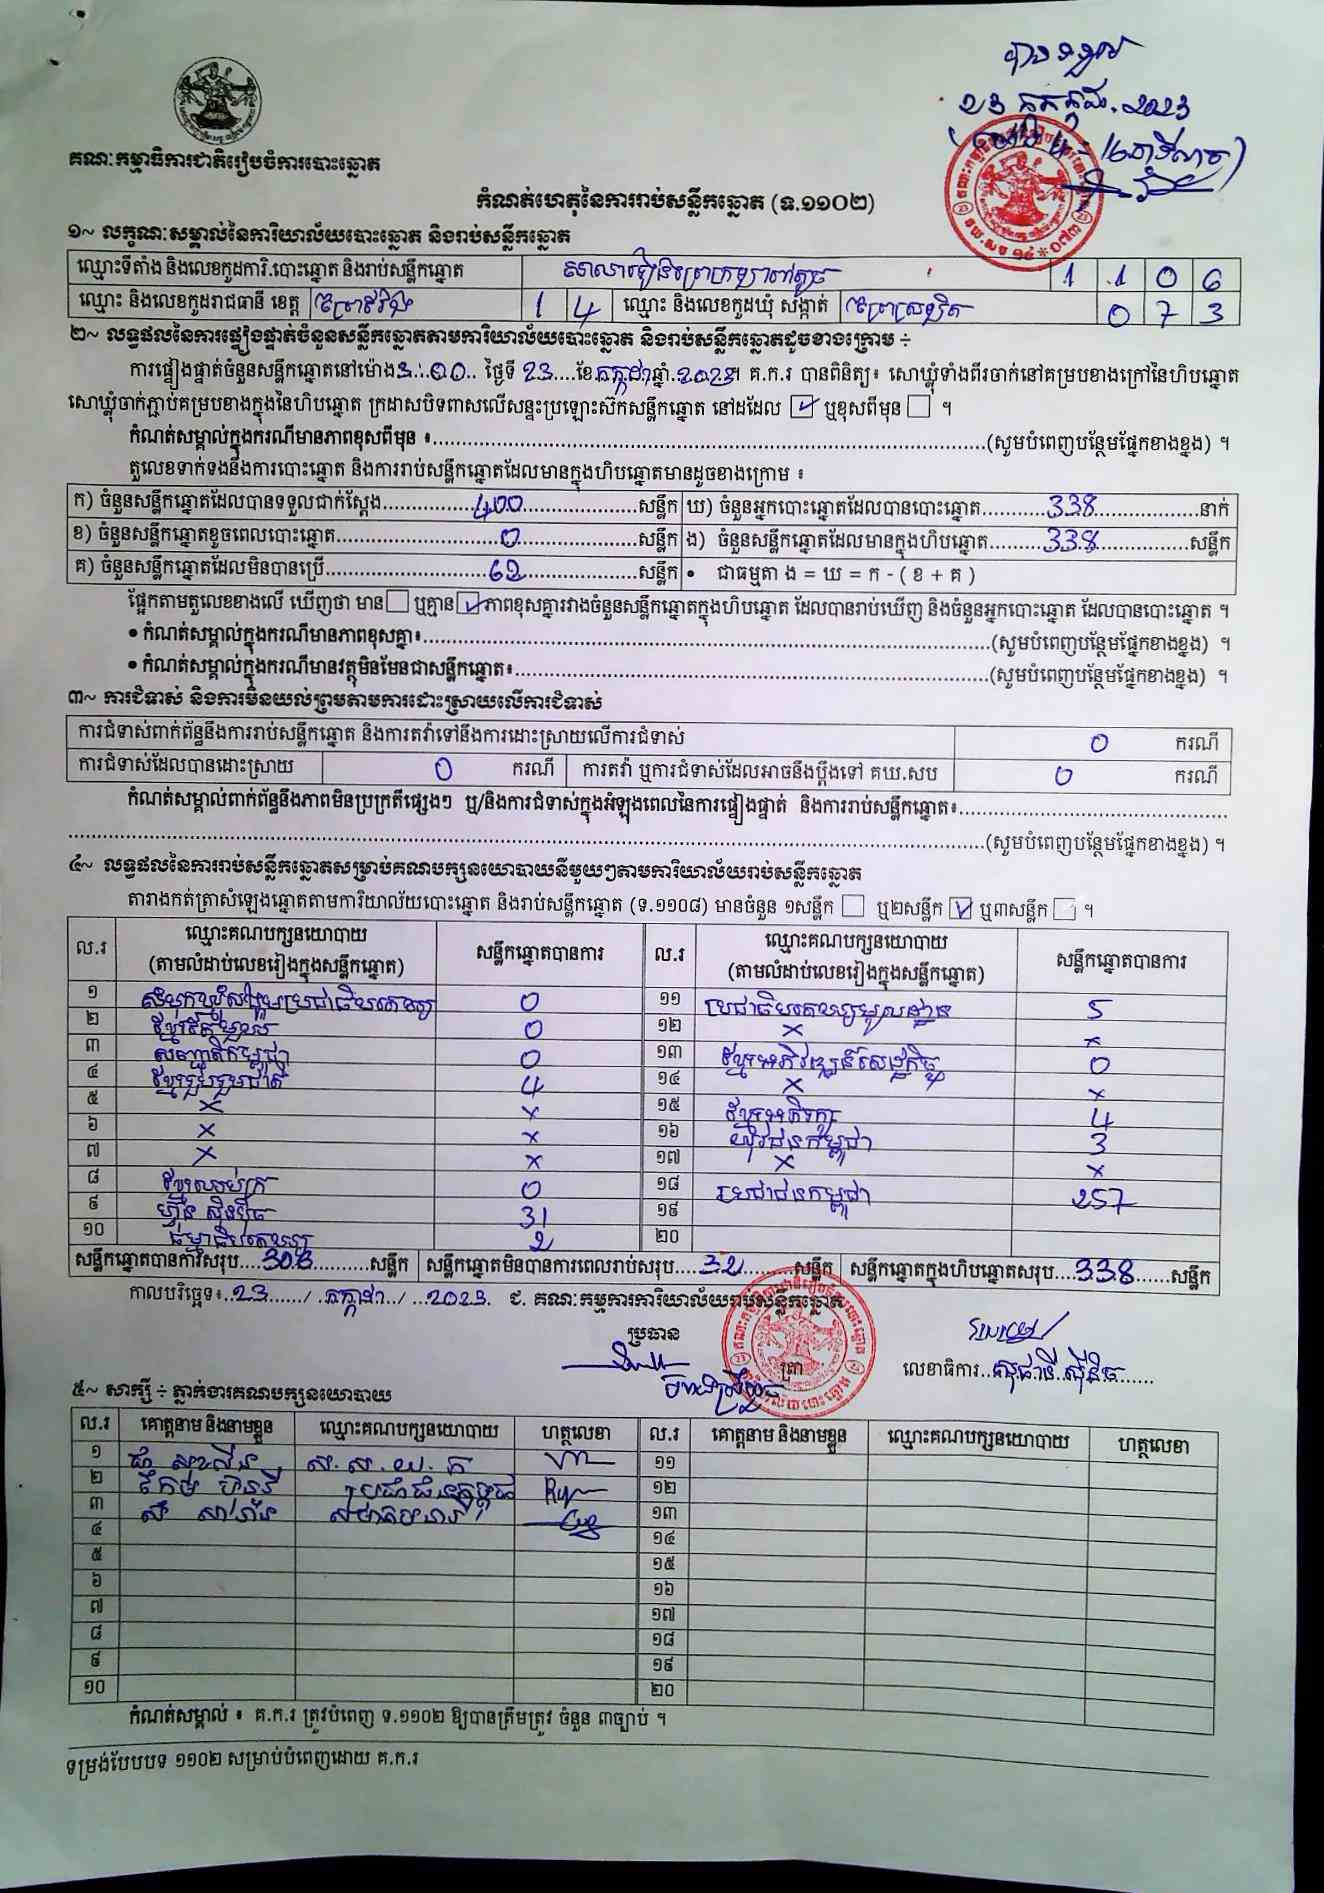 គណៈកម្មាធិការជាតិរៀបចំការបោះឆ្នោត
បានទទួល
23 កក្កដា. 2023
កំណត់ហេតុនៃការរាប់សន្លឹកឆ្នោត (ទ.១១០២)
១~ លក្ខណៈសម្គាល់នៃការិយាល័យបោះឆ្នោត និងរាប់សន្លឹកឆ្នោត
ឈ្មោះទីតាំង និងលេខកូដការិ.បោះឆ្នោត និងរាប់សន្លឹកឆ្នោត 1 1 0 6
ឈ្មោះ និងលេខកូដរាជធានី ខេត្ត ព្រៃវែង 1 4 ឈ្មោះ និងលេខកូដឃុំ សង្កាត់ 0 7 3
២~ លទ្ធផលនៃការផ្ទៀងផ្ទាត់ចំនួនសន្លឹកឆ្នោតតាមការិយាល័យបោះឆ្នោត និងរាប់សន្លឹកឆ្នោតដូចខាងក្រោម ÷
ការផ្ទៀងផ្ទាត់ចំនួនសន្លឹកឆ្នោតនៅម៉ោង 3:00 ថ្ងៃទី 23 ខែ កក្កដា ឆ្នាំ 2023។ គ.ក.រ បានពិនិត្យ៖ សោឃ្លុំទាំងពីរចាក់នៅគម្របខាងក្រៅនៃហិបឆ្នោត
សោឃ្លុំចាក់ភ្ជាប់គម្របខាងក្នុងនៃហិបឆ្នោត ក្រដាសបិទពាសលើសន្ទះប្រឡោះស៊កសន្លឹកឆ្នោត នៅដដែល ☑ ឬខុសពីមុន ☐ ។
កំណត់សម្គាល់ក្នុងករណីមានភាពខុសពីមុន ៖..........(សូមបំពេញបន្ថែមផ្នែកខាងខ្នង) ។
តួលេខទាក់ទងនឹងការបោះឆ្នោត និងការរាប់សន្លឹកឆ្នោតដែលមានក្នុងហិបឆ្នោតមានដូចខាងក្រោម ៖
ក) ចំនួនសន្លឹកឆ្នោតដែលបានទទួលជាក់ស្តែង 400 សន្លឹក ឃ) ចំនួនអ្នកបោះឆ្នោតដែលបានបោះឆ្នោត 338 នាក់
ខ) ចំនួនសន្លឹកឆ្នោតខូចពេលបោះឆ្នោត 0 សន្លឹក ង) ចំនួនសន្លឹកឆ្នោតដែលមានក្នុងហិបឆ្នោត 338 សន្លឹក
គ) ចំនួនសន្លឹកឆ្នោតដែលមិនបានប្រើ 62 សន្លឹក • ជាធម្មតា ង = ឃ = ក - ( ខ + គ )
ផ្អែកតាមតួលេខខាងលើ ឃើញថា មាន ☐ ឬគ្មាន ☑ ភាពខុសគ្នារវាងចំនួនសន្លឹកឆ្នោតក្នុងហិបឆ្នោត ដែលបានរាប់ឃើញ និងចំនួនអ្នកបោះឆ្នោត ដែលបានបោះឆ្នោត ។
• កំណត់សម្គាល់ក្នុងករណីមានភាពខុសគ្នា៖..........(សូមបំពេញបន្ថែមផ្នែកខាងខ្នង) ។
• កំណត់សម្គាល់ក្នុងករណីមានវត្ថុមិនមែនជាសន្លឹកឆ្នោត៖..........(សូមបំពេញបន្ថែមផ្នែកខាងខ្នង) ។
៣~ ការជំទាស់ និងការមិនយល់ព្រមតាមការដោះស្រាយលើការជំទាស់
ការជំទាស់ពាក់ព័ន្ធនឹងការរាប់សន្លឹកឆ្នោត និងការតវ៉ាទៅនឹងការដោះស្រាយលើការជំទាស់ 0 ករណី
ការជំទាស់ដែលបានដោះស្រាយ 0 ករណី ការតវ៉ា ឬការជំទាស់ដែលអាចនឹងប្តឹងទៅ គឃ.សប 0 ករណី
កំណត់សម្គាល់ពាក់ព័ន្ធនឹងភាពមិនប្រក្រតីផ្សេងៗ ឬ/និងការជំទាស់ក្នុងអំឡុងពេលនៃការផ្ទៀងផ្ទាត់ និងការរាប់សន្លឹកឆ្នោត៖..........
..........(សូមបំពេញបន្ថែមផ្នែកខាងខ្នង) ។
៤~ លទ្ធផលនៃការរាប់សន្លឹកឆ្នោតសម្រាប់គណបក្សនយោបាយនីមួយៗតាមការិយាល័យរាប់សន្លឹកឆ្នោត
តារាងកត់ត្រាសំឡេងឆ្នោតតាមការិយាល័យបោះឆ្នោត និងរាប់សន្លឹកឆ្នោត (ទ.១១០៨) មានចំនួន ១សន្លឹក ☐ ឬ២សន្លឹក ☑ ឬ៣សន្លឹក ☐ ។
ល.រ ឈ្មោះគណបក្សនយោបាយ (តាមលំដាប់លេខរៀងក្នុងសន្លឹកឆ្នោត) សន្លឹកឆ្នោតបានការ ល.រ ឈ្មោះគណបក្សនយោបាយ (តាមលំដាប់លេខរៀងក្នុងសន្លឹកឆ្នោត) សន្លឹកឆ្នោតបានការ
១ សំបុកឃ្មុំសង្គមប្រជាធិបតេយ្យ 0 ១១ ប្រជាធិបតេយ្យមូលដ្ឋាន 5
២ ខ្មែរតែមួយ 0 ១២ × ×
៣ សញ្ជាតិកម្ពុជា 0 ១៣ ខ្មែរអភិវឌ្ឍន៍សេដ្ឋកិច្ច 0
៤ ខ្មែររួបរួមជាតិ 4 ១៤ × ×
៥ × × ១៥ ខ្មែរអភិរក្ស 4
៦ × × ១៦ យុវជនកម្ពុជា 3
៧ × × ១៧ × ×
៨ ខ្មែរឈប់ក្រ 0 ១៨ ប្រជាជនកម្ពុជា 257
៩ ហ្វ៊ុនស៊ិនប៉ិច 31 ១៩
១០ ធម្មាធិបតេយ្យ 2 ២០
សន្លឹកឆ្នោតបានការសរុប 306 សន្លឹក សន្លឹកឆ្នោតមិនបានការពេលរាប់សរុប 32 សន្លឹក សន្លឹកឆ្នោតក្នុងហិបឆ្នោតសរុប 338 សន្លឹក
កាលបរិច្ឆេទ៖ 23 / កក្កដា / 2023 ជ. គណៈកម្មការការិយាល័យរាប់សន្លឹកឆ្នោត
ប្រធាន ត្រា លេខាធិការ
៥~ សាក្សី ÷ ភ្នាក់ងារគណបក្សនយោបាយ
ល.រ គោត្តនាម និងនាមខ្លួន ឈ្មោះគណបក្សនយោបាយ ហត្ថលេខា ល.រ គោត្តនាម និងនាមខ្លួន ឈ្មោះគណបក្សនយោបាយ ហត្ថលេខា
១ ស.ស.យ.ក ១១
២ ប្រជាជនកម្ពុជា ១២
៣ ១៣
៤ ១៤
៥ ១៥
៦ ១៦
៧ ១៧
៨ ១៨
៩ ១៩
១០ ២០
កំណត់សម្គាល់ ៖ គ.ក.រ ត្រូវបំពេញ ទ.១១០២ ឱ្យបានត្រឹមត្រូវ ចំនួន ៣ច្បាប់ ។
ទម្រង់បែបបទ ១១០២ សម្រាប់បំពេញដោយ គ.ក.រ